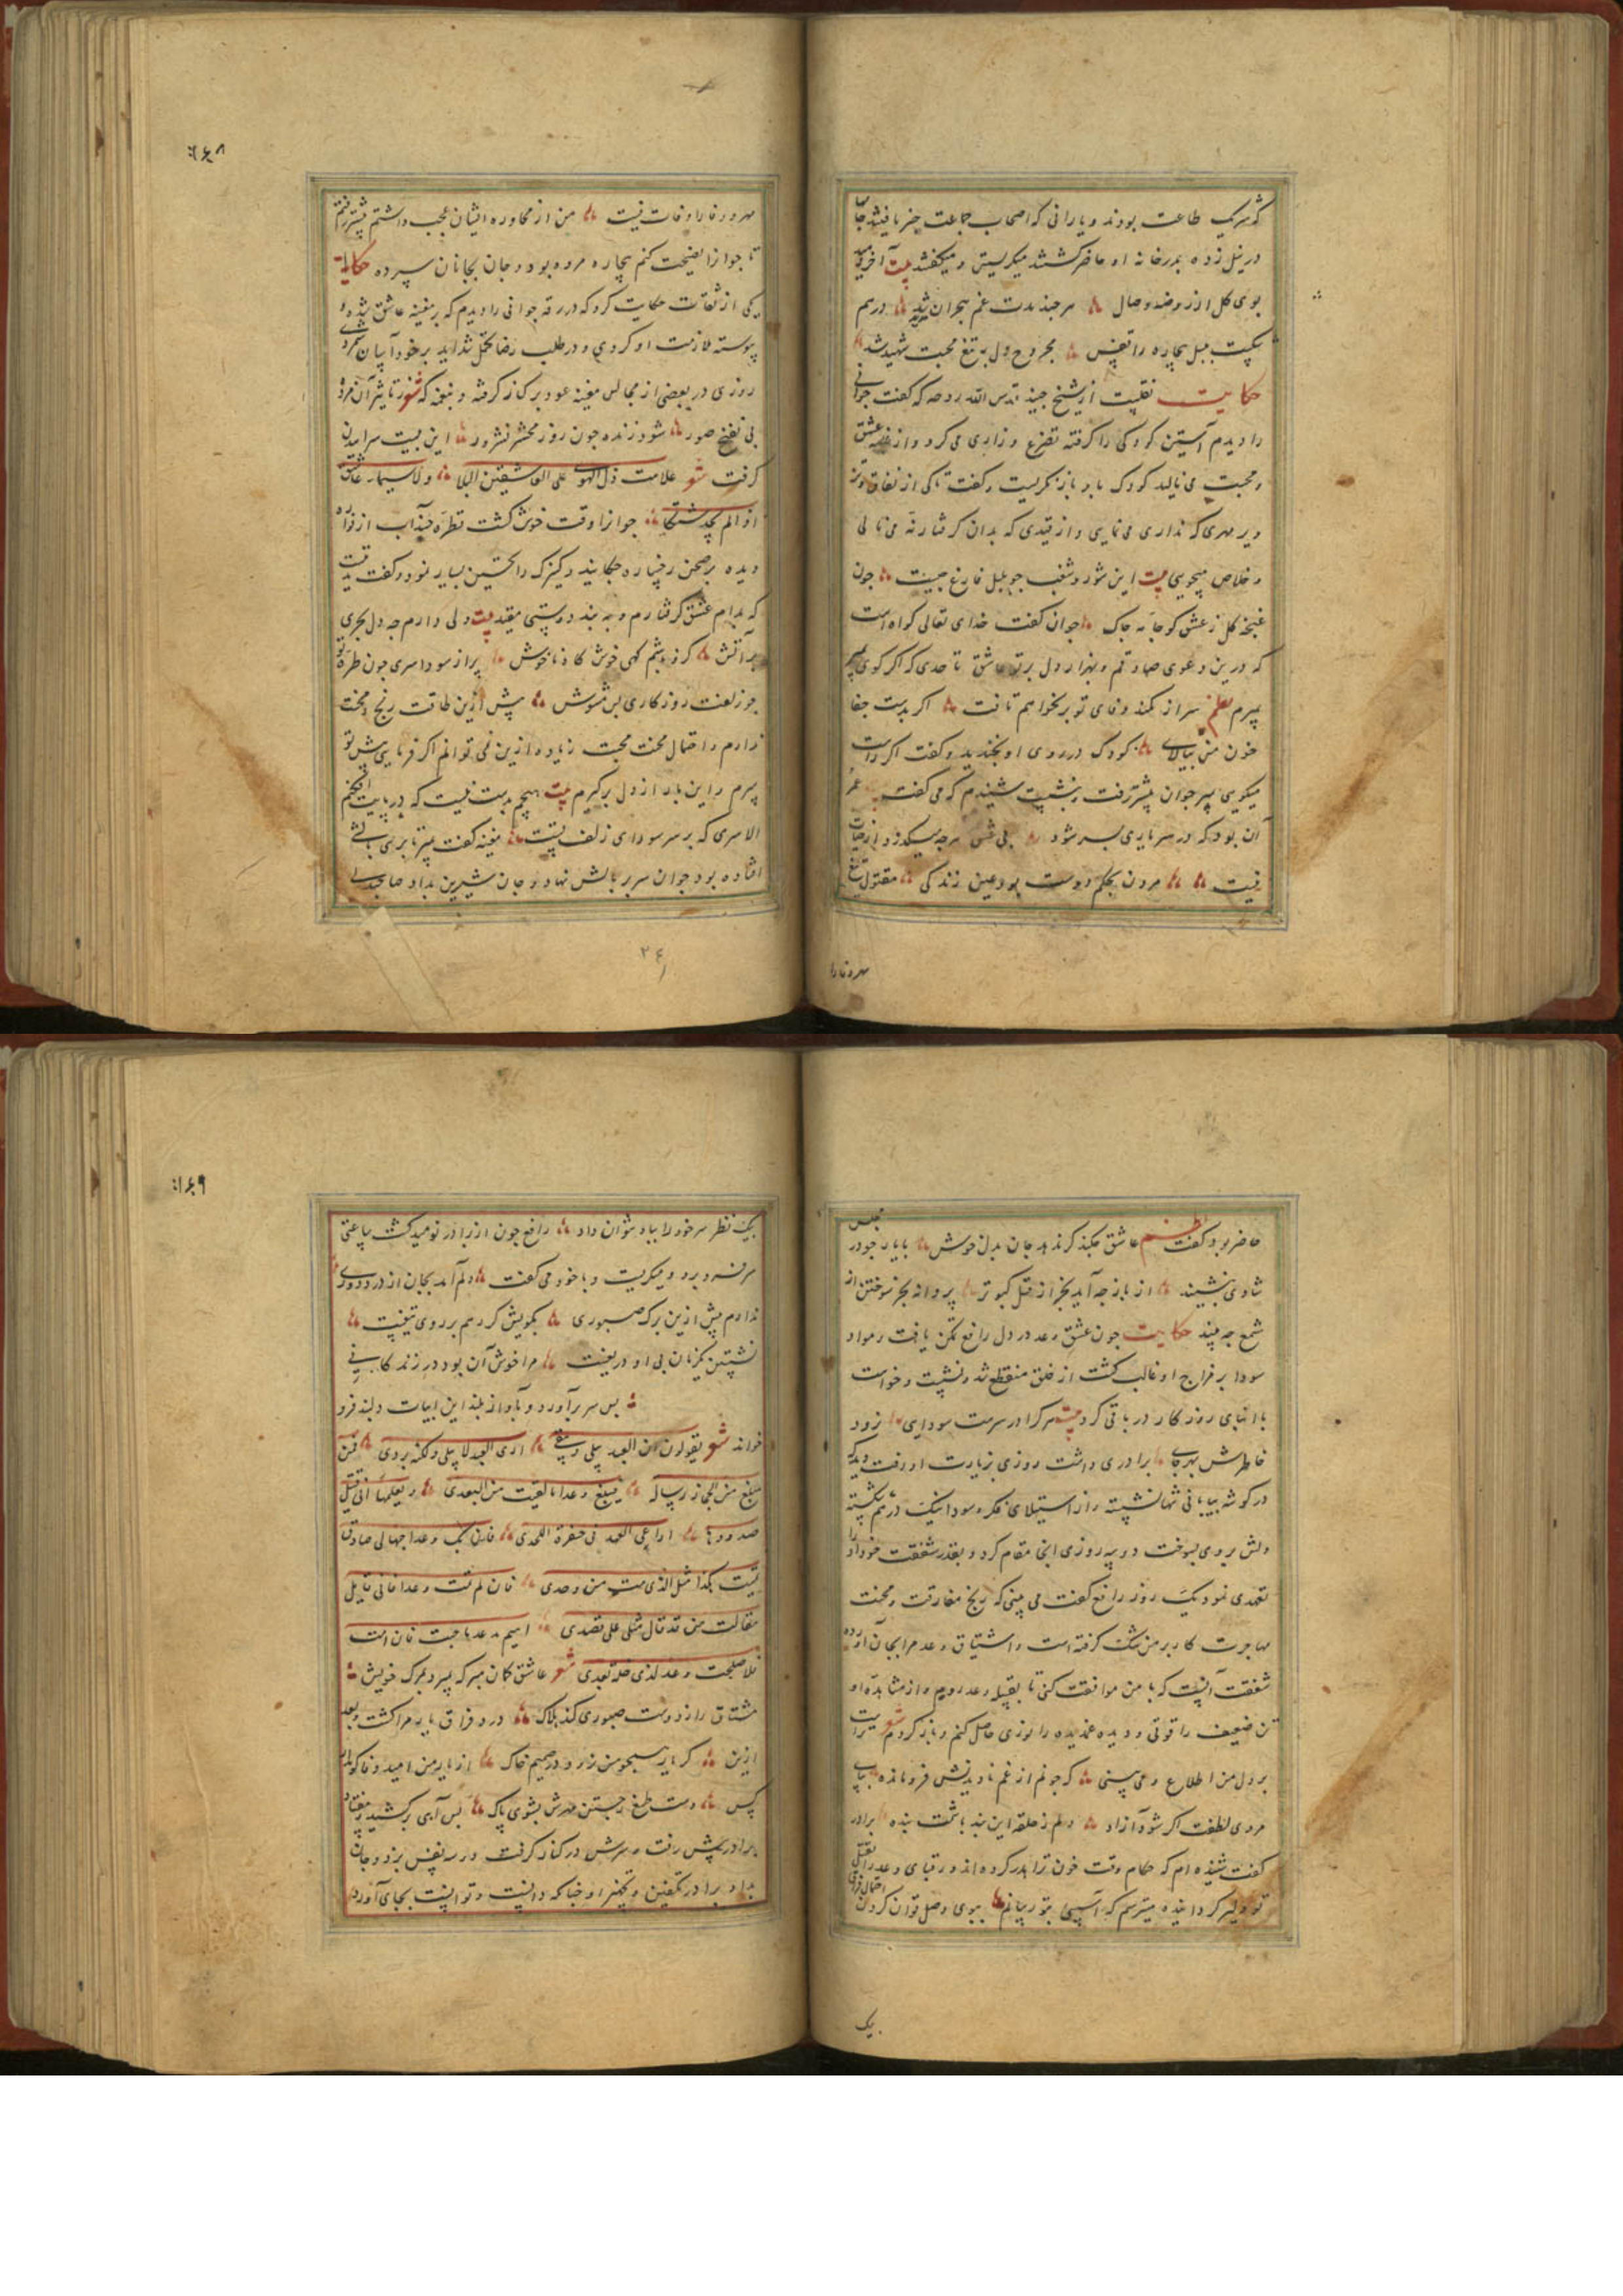 که شریک طاعت بودند و یارانی که اصحاب جماعت خبر یافتند
در نیل زده بدرخانه او حاضر گشتند میگریستن و میگفتند بیت آخر
بوی گل از روضه وصال هر چند مدت غم هجران درهم
شکست بلبل بیچاره را قفس مجروح دل به تیغ محبت شهید شد
حکایت نقلست از شیخ جنید قدس الله روحه که گفت جوانی
را دیدم آستین کودکی را گرفته تضرع و زاری می کرد و از عشق
و محبت می نالید کودک باو باز نگریست و گفت تا کی از نفاق
و بر مهری که نداری می نمایی و از قیدی که بدان گرفتار نه می نالی
و خلاص میجویی بیت این شور و شغب جو بلبل فارغ جیست جون
غنچه گل ز عشق کو جامه جاک جوان گفت خدای تعالی گواه است
که درین دعوی صادقم و بهزار دل بر تو عاشق تا حدی که اگر گویی بمیر
بمیرم نظم سر از کمند وفای تو بر نخواهم تافت اگر بدست جفا
خون من بیالای کودک در روی او بخندید و گفت اگر راست
میگویی بمیر جوان پیشتر رفت و بنشست شنیدم که می گفت عمر
آن بود که در سر یاری بسر شود بی عشق هرچه میگذرد از حیات
نیست مردن بحکم دوست بود عین زندگی مقتول تیغ
مهر و وفا را
۱۶۸
مهر و وفا را وفات نیست من از محاوره ایشان عجب داشتم پیشتر رفتم
تا جوانرا نصیحت کنم بیچاره مرده بود و جان بجانان سپرده حکایت
یکی از ثقات حکایت کرد که در رقه جوانی را دیدم که بر مغنیه عاشق شده
پیوسته ملازمت او کردی و در طلب رضا تحمل شداید بر خود آسان شمردی
روزی در بعضی از مجالس مغنیه عود بر کنار گرفته و بنغمه که شعر ز تاثیر آن مرده
بی نفخ صور شود زنده جون روز محشر نشور این بیت سراییدن
گرفت شعر علامت ذل الهوی علی العاشقین البکا ولا سیما عاشق
اذا لم یجد مشتکا جوانرا وقت خوش گشت قطره جند آب از فواره
دیده بر صحن رخساره جکانید و کنیزک را تحسین بسیار نمود و گفت
که بدام عشق گرفتارم و به بند دوستی مقید بیت دلی دارم جه دل
بر آتش گهی خوش گاه ناخوش پر از سودا سری جون طره تو
جو زلفت روزگاری بس مشوش پیش ازین طاقت رنج و محنت
ندارم و احتمال محنت محبت زیاده ازین نمی توانم اگر فرمایی پیش تو
میرم و این بار از دل برگیرم بیت هیچم بدست نیست که در پایت افکنم
الا سری که بر سر سودای زلف تست مغنیه گفت بمیر تا بری بالشی
افتاده بود جوان سر بر بالش نهاد و جان شیرین بداد صاحبدلی
۲۴
حاضر بود گفت نظم عاشق جکند گر ندهد جان بدل خوش با یار جو در مجلس
شادی بنشیند از باز جه آید بجز از قتل کبوتر پروانه بجز سوختن از
شمع جه بیند حکایت جون عشق وعد در دل رافع تمکن یافت و مواد
سودا بر مزاج او غالب گشت از خلق منقطع شد و نشست و خواست
با ابنای روزگار در باقی کرد بیت هر کرا در سرست سودایی نرود
خاطرش بهر جای برادری داشت روزی بزیارت او رفت دید که
در گوشه بیابانی تنها نشسته و از استیلای فکر و سودا نیک درهم شکسته
دلش بروی بسوخت دو سه روزی آنجا مقام کرد و بقدر شفقت خود او را
تعهدی نمود یک روز رافع گفت می بینی که رنج مفارقت و محنت
مهاجرت کار بر من تنگ گرفته است و اشتیاق وعد مرا بجان آورده
شفقت آنست که با من موافقت کنی تا بقبیله وعد رویم و از مشاهده او
تن ضعیف را قوتی و دیده غمدیده را نوری حاصل کنم و باز گردم شعر تراست
بر دل من اطلاع و می بینی که جونم از غم نادیدنش فرو مانده بپای
مردی لطفت اگر شود آزاد دلم ز حلقه این بند باشمت بنده برادر
گفت شنیده ام که حکام وقت خون ترا هدر کرده اند و رقبای وعد را بقتل
تو دلیر گردانیده میترسم که آسیبی بتو رسانم ببوی وصل توان کردن احتمال فراق
یک
۱۶۹
بیک نظر سر خود را بباد نتوان داد رافع جون از برادر نومید گشت ساعتی
سر فرو برد و میگریست و با خود می گفت دلم آمد بجان از درد دوری
ندارم بیش ازین برگ صبوری بکویش گر دهم بر روی تیغیست
نشستن یکزمان بی او دریغست مرا خوش آن بود در زندگانی
پس سر برآورد و بآواز بلند این ابیات دلبند فرو
خواند شعر یقولون ان البعد یسلی و یشفی اری البعد لا یسلی ولکنه یردی فمن
مبلغ من الحجاز رسالة یبلغ وعدا ما لقیت من البعدی و یعلمها انی قتیل
صدودها اراعی العهد فی حفرة اللحدی فان تک وعدا جهالی صادق
تمت کذا مثل الذی مت من وجدی فان لم تمت وعدا فانی قایل
مقالت من قد قال مثلی علی قصدی اهیم بدعد ما حییت فان امت
فلا صلحت دعد لذی خلة بعدی شعر عاشق گمان مبر که بمیرد بمرگ خویش
مشتاق را ز دوست صبوری کند هلاک درد فراق یار مرا کشت بعد
ازین گر یار همجو من نرود در صمیم خاک از یار من امید وفا گو مدار
کس دست طمع ز جستن مهرش بشوی پاک پس آهی برکشید و بیفتاد
برادر پیش رفت و سرش در کنار گرفت و سه نفس بزد و جان
بداد برادر تکفین و تجهیز او جنانکه دانست و توانست بجای آورد